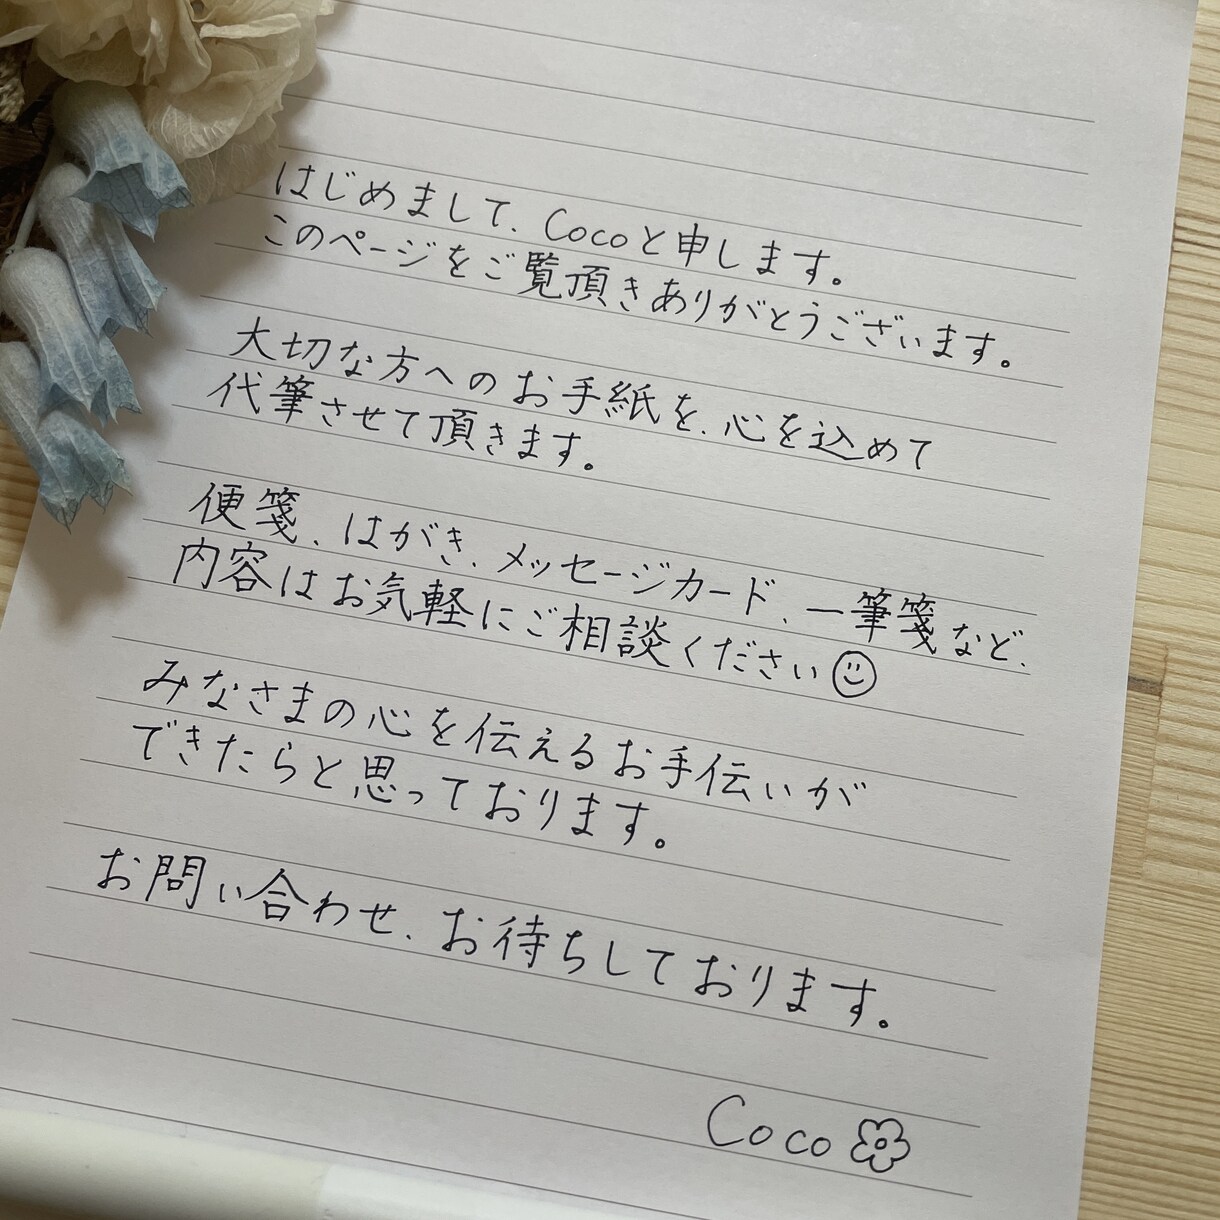 はじめまして、Cocoと申します。
このページをご覧頂きありがとうございます。
大切な方へのお手紙を、心を込めて
代筆させて頂きます。
便箋、はがき、メッセージカード、一筆箋など、
内容はお気軽にご相談ください☺
みなさまの心を伝えるお手伝いが
できたらと思っております。
お問い合わせ、お待ちしております。
Coco